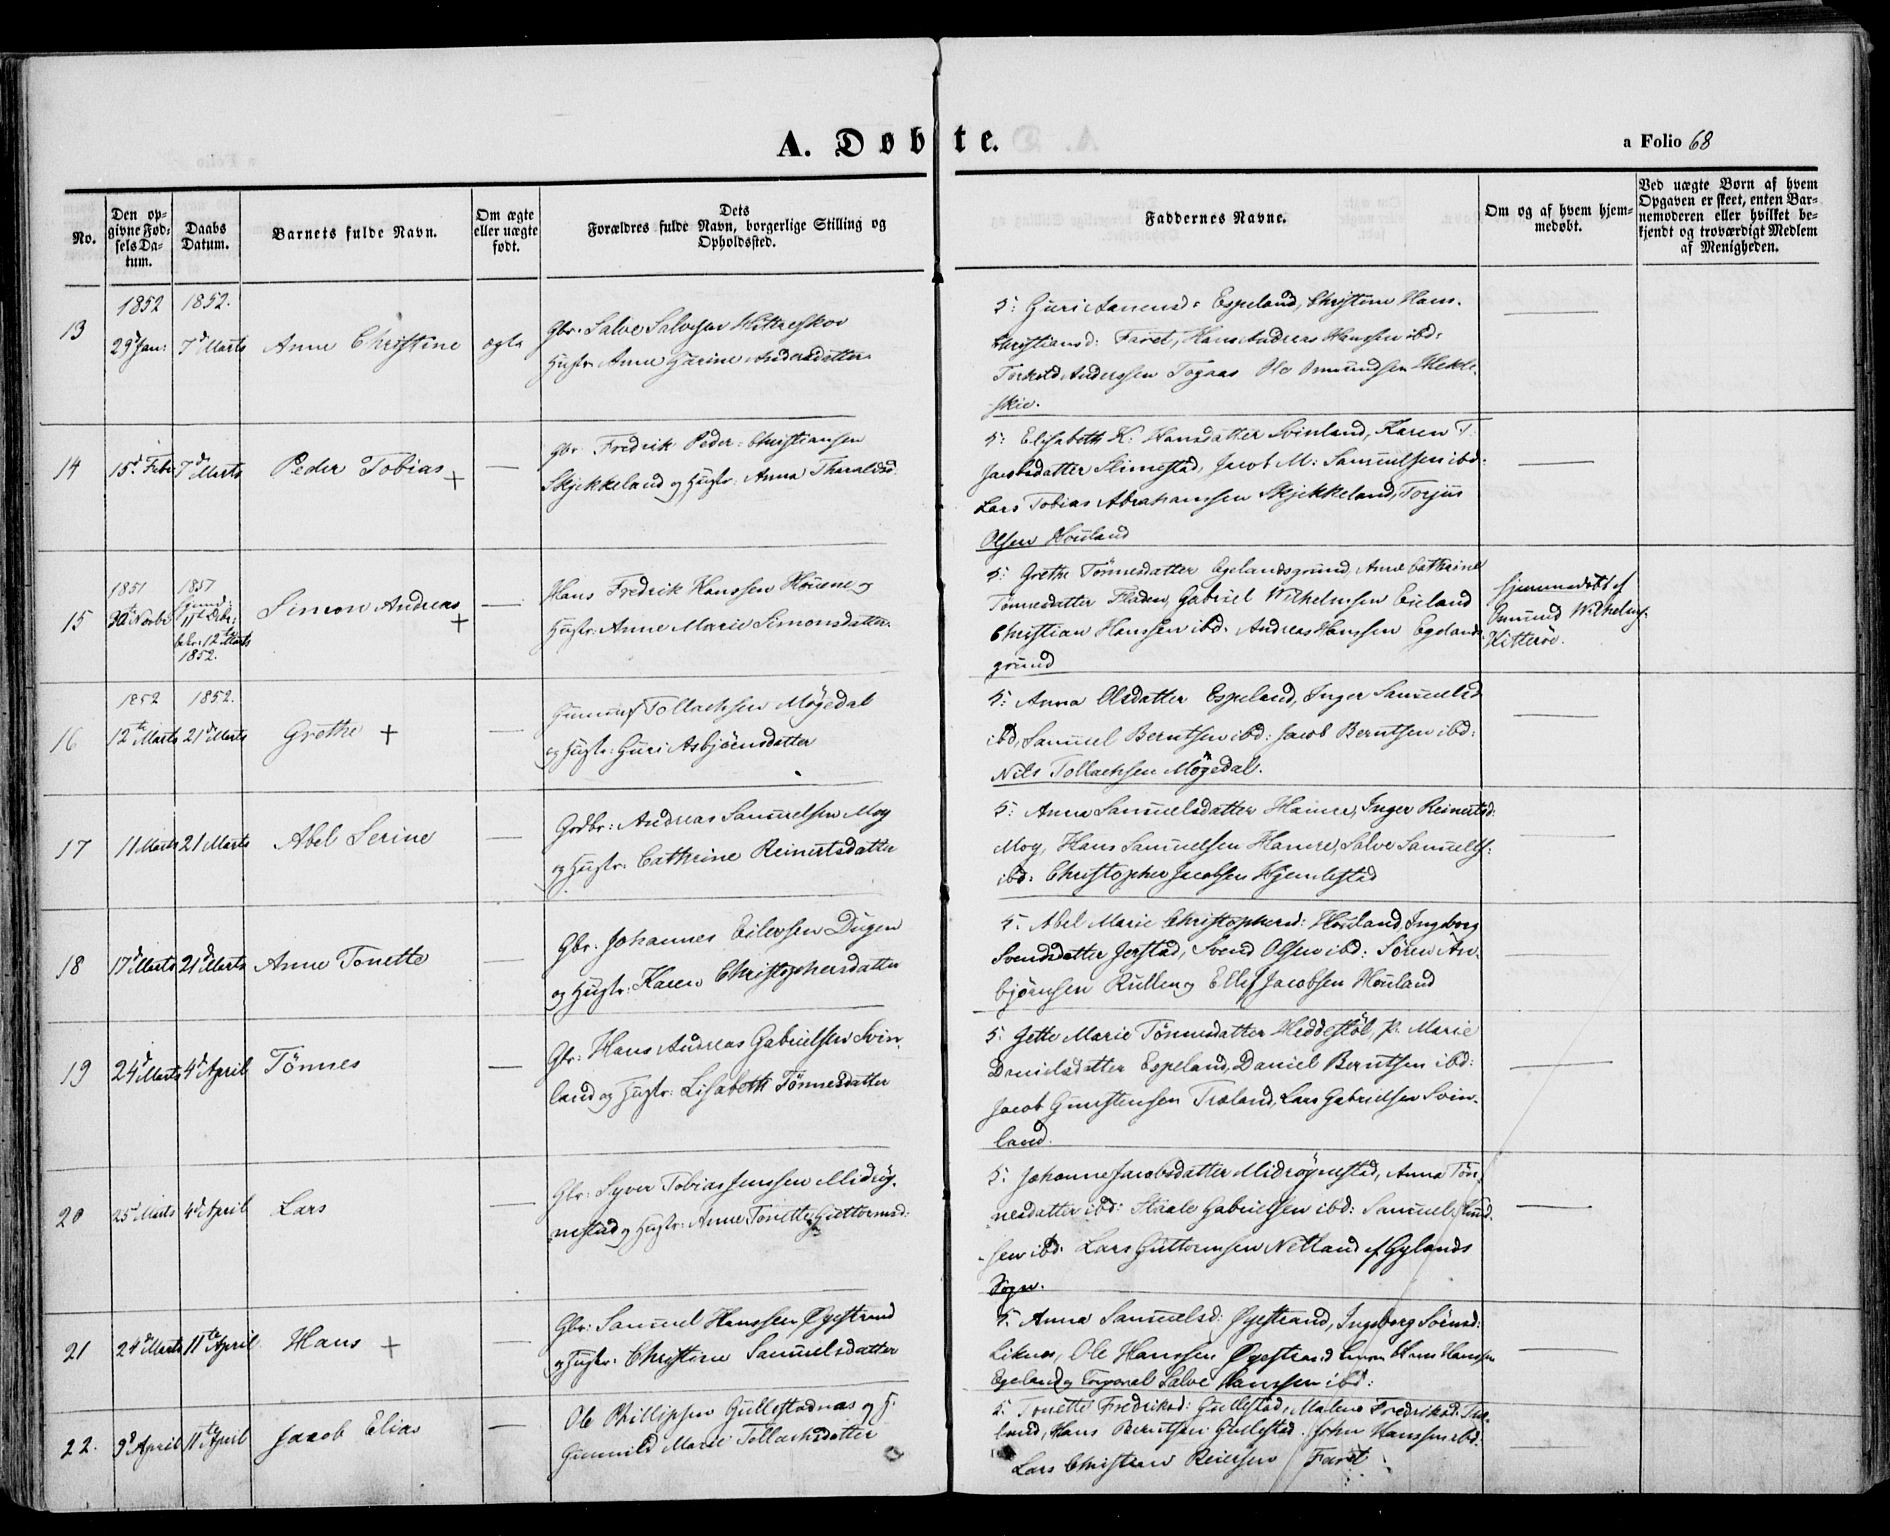 A. Døbte.
a Folio 68
No.
Den op-
givne Fød-
sels Da-
tum.
Daabs
Datum.
Barnets fulde Navn.
Om ægte
eller uægte
født.
Dets
Forældres fulde Navn, borgerlige Stilling og
Opholdssted.
Faddernes Navne.
Om og af hvem hjem-
medøbt.
Ved uægte Børn af hvem
Opgaven er skeet, enten Bar-
nemoderen eller hvilket be-
kjendt og troværdigt Medlem
af Menigheden.
13
1852
29d Jan:
1852.
7d Marts
Anne Christine
ægte
Gbr. Salve Salvesen
Hustr. Anne Andersdatter
5: Guri Espeland, Christine Hans.
Christiansd: Faret, Hans Andreas Hanssen ibd:
Torkild Anderssen Togaas Ole Omundsen
skie.
14
15d Febr
7d Marts
Peder Tobias +
—
Gbr. Fredrik Peder Christiansen
Skjekkeland og Hustr: Anna Tharaldsd:
5: Elisabeth K. Hansdatter Svinland, Karen T.
Jacobsdatter Slimestad, Jacob M: Samuelsen ibd.
Lars Tobias Abrahamsen Skjekkeland, Torjus
Olsen Houland
15
1851
30te Novbr
1851
11te Debr:
bekr. 12te Marts
1852.
Simon Andreas +
—
Hans Fredrik Hanssen Houene og
Hustr. Anne Marie Simonsdatter
5: Grethe Tönnesdatter Egelandsgrund, Anne Cathrine
Tønnesdatter Fladen, Gabriel Wilhelmsen Eieland
Christian Hanssen ibd. Andreas Hanssen Egelands
grund
hjemmedøbt af
Omund Wilhelms:
Hitterøe.
16
1852
12te Marts
1852.
21d Marts
Grethe +
—
Tollachsen Møgedal
og Hustr: Guri Asbjørnsdatter
5: Anna Olsdatter Espeland, Inger Samuelsd
ibd, Samuel Berntsen ibd: Jacob Berntsen ibd:
Nils Tollachsen Møgedal.
17
11 Marts
21 Marts
Abel Serine
—
Grdbr: Andreas Samuelsen Moy
og Hustr: Cathrine Reinertsdatter
5: Anna Samuelsdatter Hamre, Inger Reinertsd:
Moy, Hans Samuelsen Hamre, Salve Samuels:
ibd: Christopher Jacobsen Hjemlestad
18
17d Marts
21d Marts
Anne Tonette
—
Gbr. Johannes Eilevsen Dugen
og Hustr: Karen Christophersdatter
5. Abel Marie Christophersd: Houland, Ingeborg
Svendsdatter Jerstad, Svend Olsen ibd: Søren An-
bjørnsen og Ellef Jacobsen Houland
19
24d Marts
4d April
Tönnes
—
Gbr: Hans Andreas Gabrielsen Svin-
land og Hustr: Lisabeth Tönnesdatter
5. Jette Marie Tönnesdatter Heddestøl, P. Marie
Danielsdatter Espeland, Daniel Berntsen ibd:
Jacob Gunstensen Træland, Lars Gabrielsen Svin-
land.
20
25d Marts
4d April
Lars
—
Gbr: Syver Tobias Jenssen Midröy-
nestad og Hustr: Anne Tonette Guttormsd:
5. Johanne Jacobsdatter Midrøynestad, Anna Tøn-
nesdatter ibd: Staale Gabrielsen ibd: Samuel Knud-
sen ibd. Lars Guttormsen Netland af Gylands
Sogn.
21
24d Marts
11te April
Hans +
—
Gbr: Samuel Hanssen Øyestrand
og Hustr: Christine Samuelsdatter
5. Anna Samuelsd: Øyestrand, Ingeborg Sørensd:
Liknes, Ole Hanssen Øyestrand Hans Hanssen
Egeland og Salve Hanssen ibd:
22.
9d April
11te April
Jacob Elias
—
Ole Phillipsen Gullestadnas og H.
Gunnild Marie Tollachsdatter
5. Tonette Fredriksd: Gullestad, Malene Fredriksd. Træ-
land, Hans Berntsen Gullestad. John Hanssen ibd:
Lars Christian Reiersen Faret